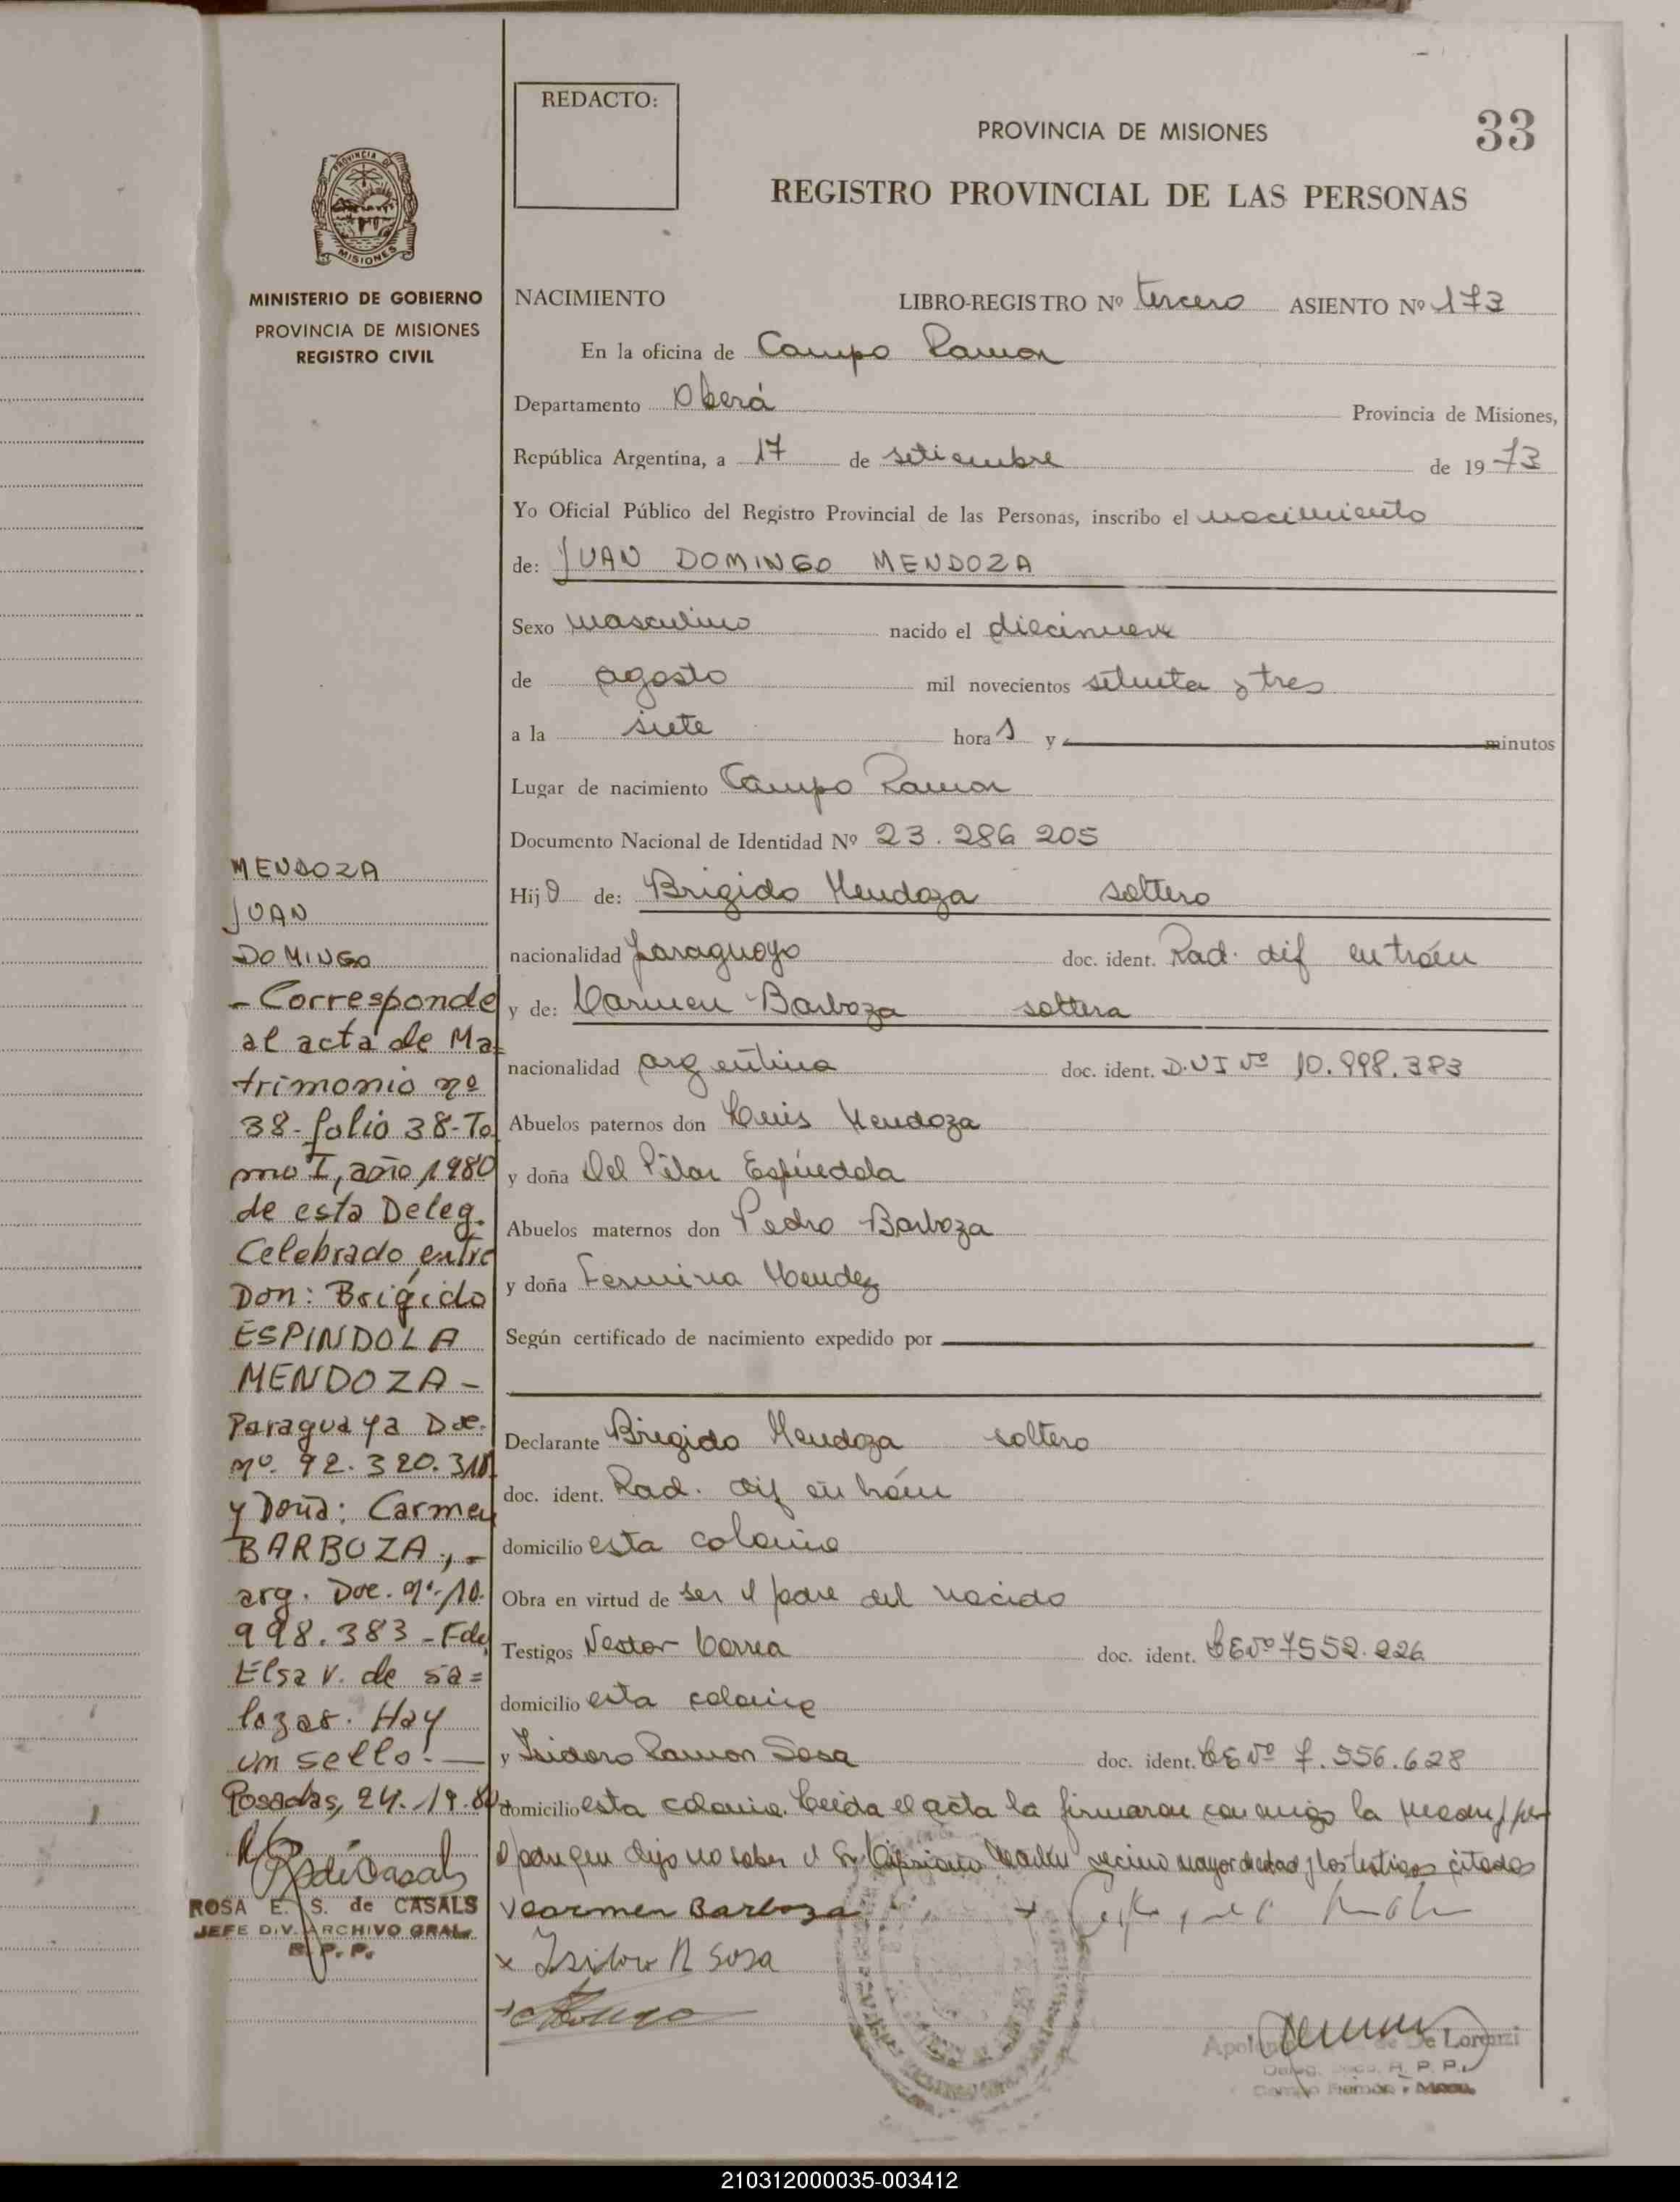 REDACTO:
PROVINCIA DE MISIONES
33
REGISTRO PROVINCIAL DE LAS PERSONAS
PROVINCIA DE
MISIONES
MINISTERIO DE GOBIERNO
PROVINCIA DE MISIONES
REGISTRO CIVIL
NACIMIENTO LIBRO-REGISTRO Nº tercero ASIENTO Nº 173
En la oficina de Campo Ramon
Departamento Oberá Provincia de Misiones,
República Argentina, a 17 de setiembre de 1973
Yo Oficial Público del Registro Provincial de las Personas, inscribo el nacimiento
de: JUAN DOMINGO MENDOZA
Sexo masculino nacido el diecinueve
de agosto mil novecientos setenta y tres
a la siete horas y minutos
Lugar de nacimiento Campo Ramon
Documento Nacional de Identidad Nº 23.286205
Hijo de: Brigido Mendoza soltero
nacionalidad paraguayo doc. ident. Rad. dif en trám
y de: Carmen Barboza soltera
nacionalidad argentina doc. ident. D.N I Nº 10.998.383
Abuelos paternos don Luis Mendoza
y doña Del Pilar Espindola
Abuelos maternos don Pedro Barboza
y doña Fermina Mendez
Según certificado de nacimiento expedido por
Declarante Brigido Mendoza soltero
doc. ident. Rad. dif en trám
domicilio esta colonia
Obra en virtud de ser el padre del nacido
Testigos Nestor Correa doc. ident. LE Nº 7552.226
domicilio esta colonia
y Isidoro Ramon Sosa doc. ident. LE Nº 7.556.628
domicilio esta colonia. Leida el acta la firmaron conmigo la madre, por
el padre que dijo no saber el Sr Cipriano vecino mayor de edad y los testigos citados
Carmen Barboza
x Isidoro R Sosa
MENDOZA
JUAN
DOMINGO
- Corresponde
al acta de Ma-
trimonio nº
38-folio 38-To
mo I, año 1980
de esta Deleg.
Celebrado entre
Don: Brígido
ESPINDOLA
MENDOZA -
Paraguaya Doc.
nº. 92.320.310
y Doña: Carmen
BARBOZA,.-
arg. Doc. nº-10.
998.383 - Fdo
Elsa V. de Sa=
lazar. Hay
un sello!—
Posadas, 24.
ROSA E. S. de CASALS
JEFE DIV. ARCHIVO GRAL.
R. P. P.
de De Lorenzi
R. P. P.
Campo Ramón - Mnes.
210312000035-003412